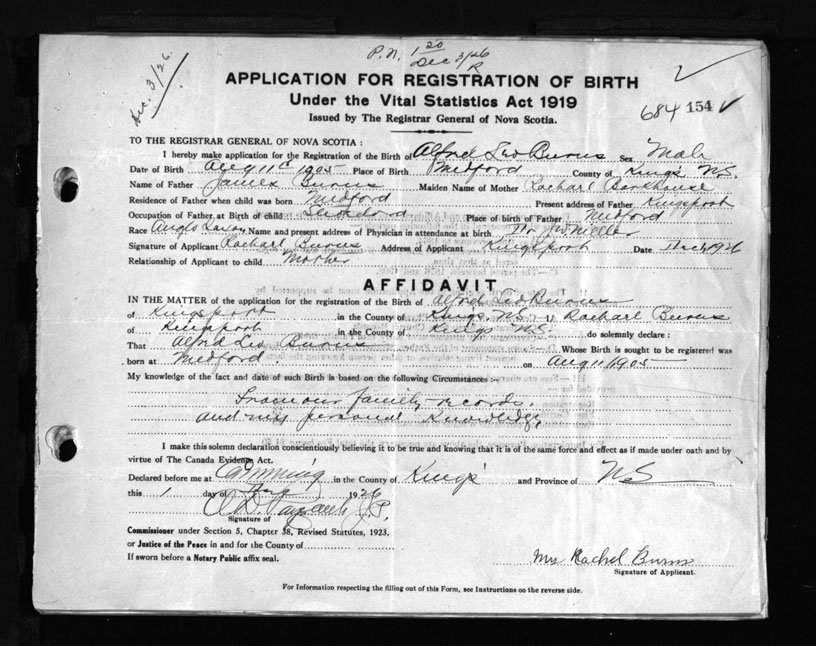 P.N. 1 20
Dec 3/26
R
Dec. 3/26.
APPLICATION FOR REGISTRATION OF BIRTH
Under the Vital Statistics Act 1919
Issued by The Registrar General of Nova Scotia.
684 154
TO THE REGISTRAR GENERAL OF NOVA SCOTIA :
I hereby make application for the Registration of the Birth of Alfred Leo Burns Sex Male
Date of Birth Aug 11 1905 Place of Birth Medford County of Kings NS.
Name of Father James Burns Maiden Name of Mother Rachael Barkhouse
Residence of Father when child was born Medford Present address of Father Kingsport
Occupation of Father at Birth of child Place of birth of Father Medford
Race Anglo Saxon Name and present address of Physician in attendance at birth Dr Miller
Signature of Applicant Rachael Burns Address of Applicant Kingsport Date 1926
Relationship of Applicant to child Mother
AFFIDAVIT
IN THE MATTER of the application for the registration of the Birth of Alfred Leo Burns
of Kingsport in the County of Kings NS I, Rachael Burns
of Kingsport in the County of Kings NS. do solemnly declare :
That Alfred Leo Burns Whose Birth is sought to be registered was
born at Medford. on Aug 11/1905
My knowledge of the fact and date of such Birth is based on the following Circumstances :-
From our family records.
and my personal knowledge,
I make this solemn declaration conscientiously believing it to be true and knowing that it is of the same force and effect as if made under oath and by
virtue of The Canada Evidence Act.
Declared before me at Canning in the County of Kings and Province of NS
this 1 day of 1926
J.P.
Signature of
Commissioner under Section 5, Chapter 38, Revised Statutes, 1923,
or Justice of the Peace in and for the County of
If sworn before a Notary Public affix seal.
Mrs Rachel Burns
Signature of Applicant.
For Information respecting the filling out of this Form, see Instructions on the reverse side.